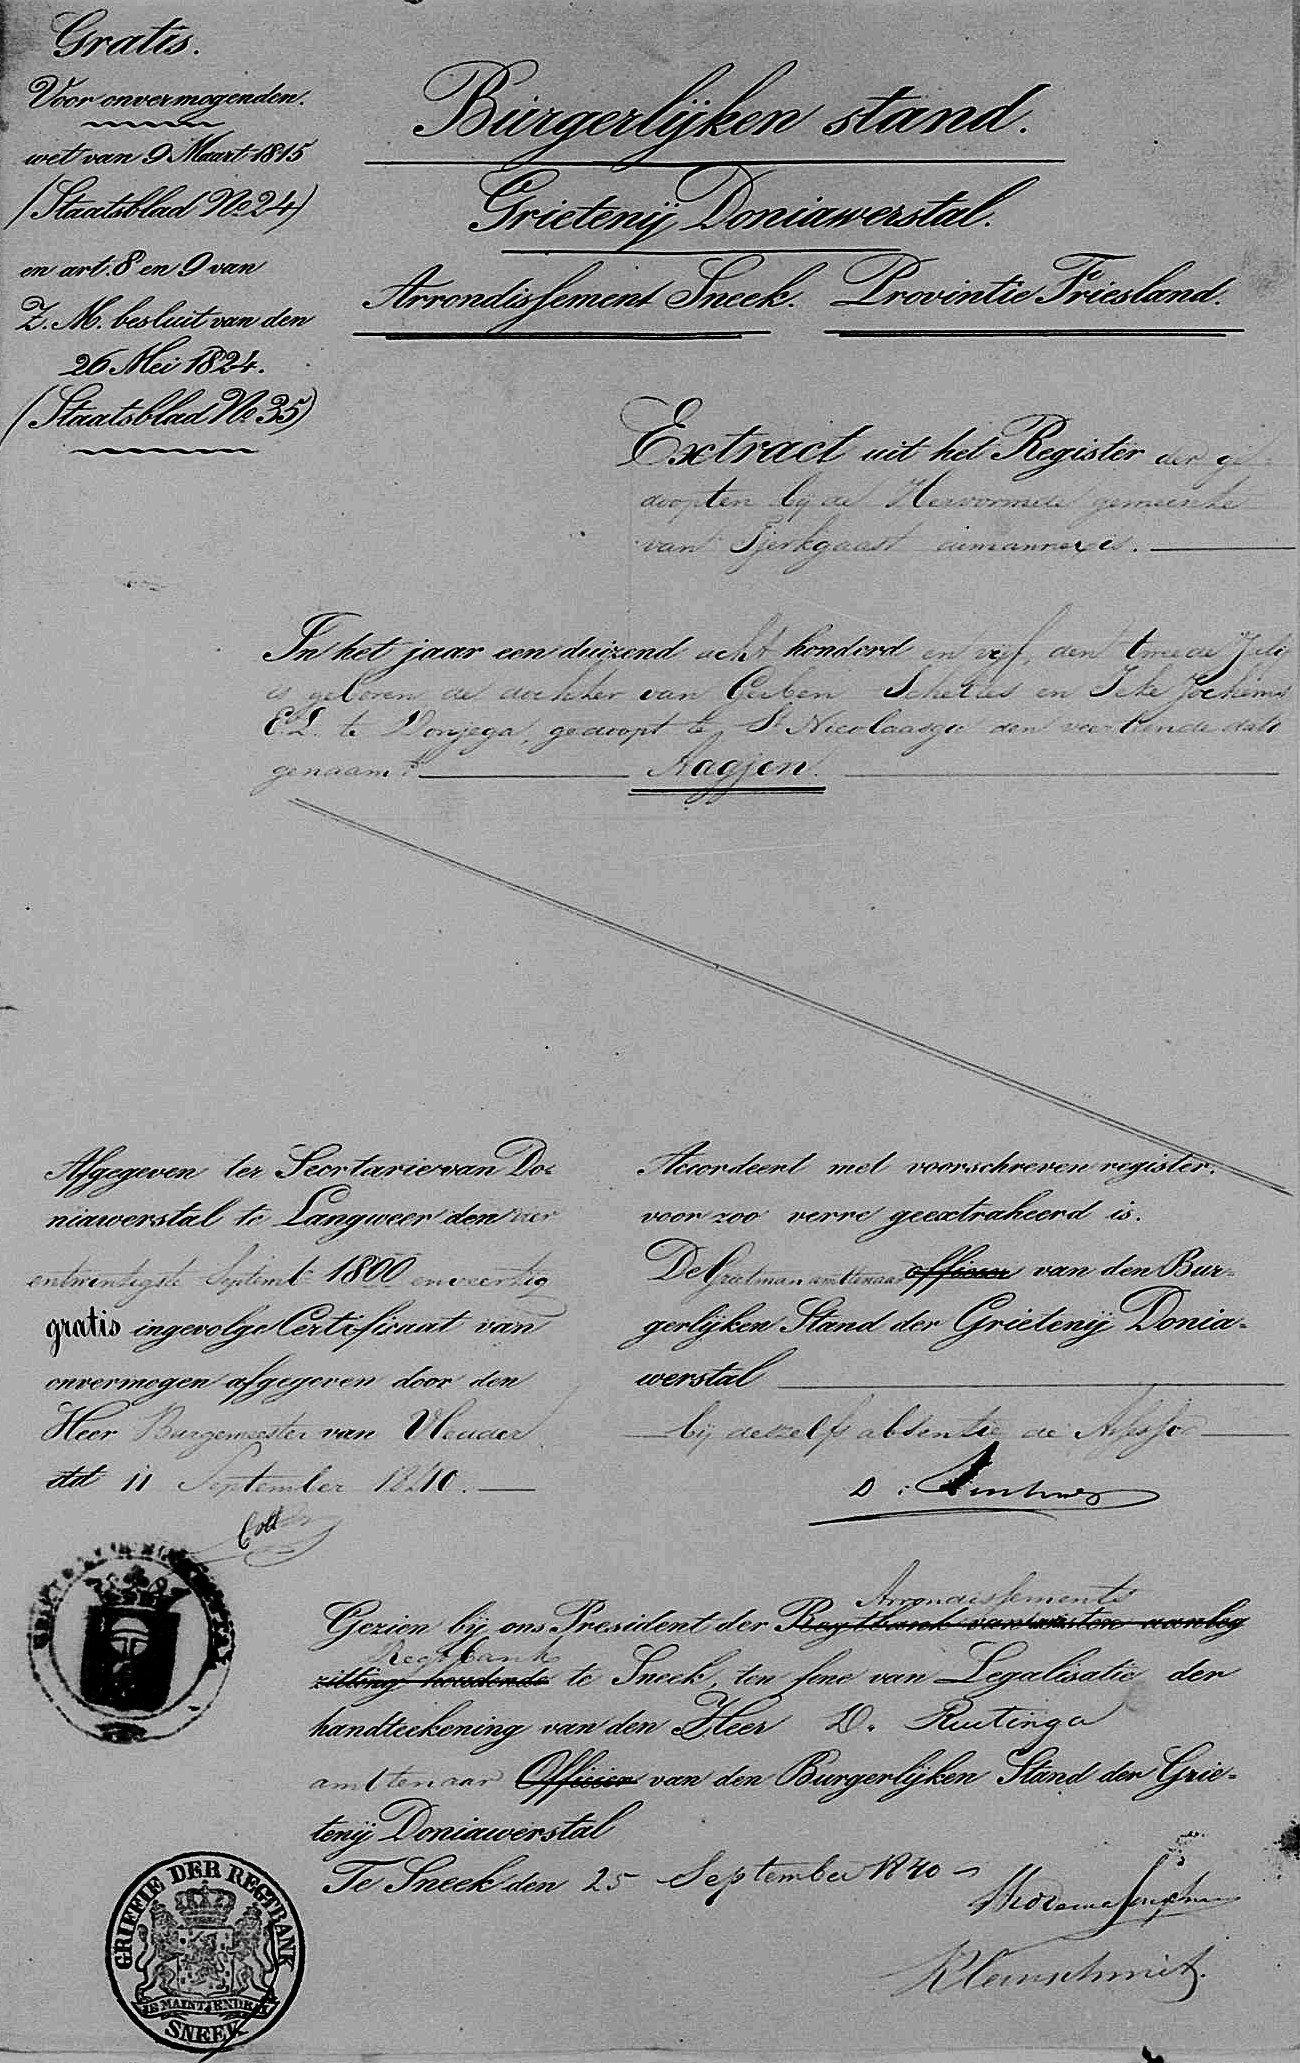 Gratis.
Voor onvermogenden.
wet van 9 Maart 1815
(Staatsblad No 24)
en art. 8 en 9 van
Z. M. besluit van den
26 Mei 1824.
(Staatsblad No 35)
Burgerlijken stand.
Grietenij Doniawerstal.
Arrondissement Sneek. Provintie Friesland.
Extract uit het Register der ge-
doopten bij de Hervormde gemeente
van Tjerkgaast cum annexis.
In het jaar een duizend acht honderd en vijf, den tweede Julij
is geboren de dochter van Geiben en Ieke Jochems
E.L. te Donjega, gedoopt te St Nicolaasga den veertiende dato
genaamt Aagjen.
Afgegeven ter Secrtarie van Do-
niawerstal te Langweer den vier
entwintigste Septemb 1800 en veertig
gratis ingevolge Certifisaat van
onvermogen afgegeven door den
Heer Burgemeester van
dd 11 September 1840.
Accordeert met voorschreven register.
voor zoo verre geextraheerd is.
De Grietman amttenaar officier van den Bur-
gerlijken Stand der Grietenij Donia-
werstal
bij deszelfs absentie de Assessor
D.
Gezien bij ons President der Regtbank van eersten aanleg
Arrondissements
zitting houdende te Sneek, ten fene van Legalisatie der
Regtbank
handteekening van den Heer D. Ruitinga
amttenaar Officier van den Burgerlijken Stand der Grie-
tenij Doniawerstal
Te Sneek den 25 September 1840
Klenschmit.
GRIFFIE DER REGTBANK
JE MAINTIENDRAI
SNEEK